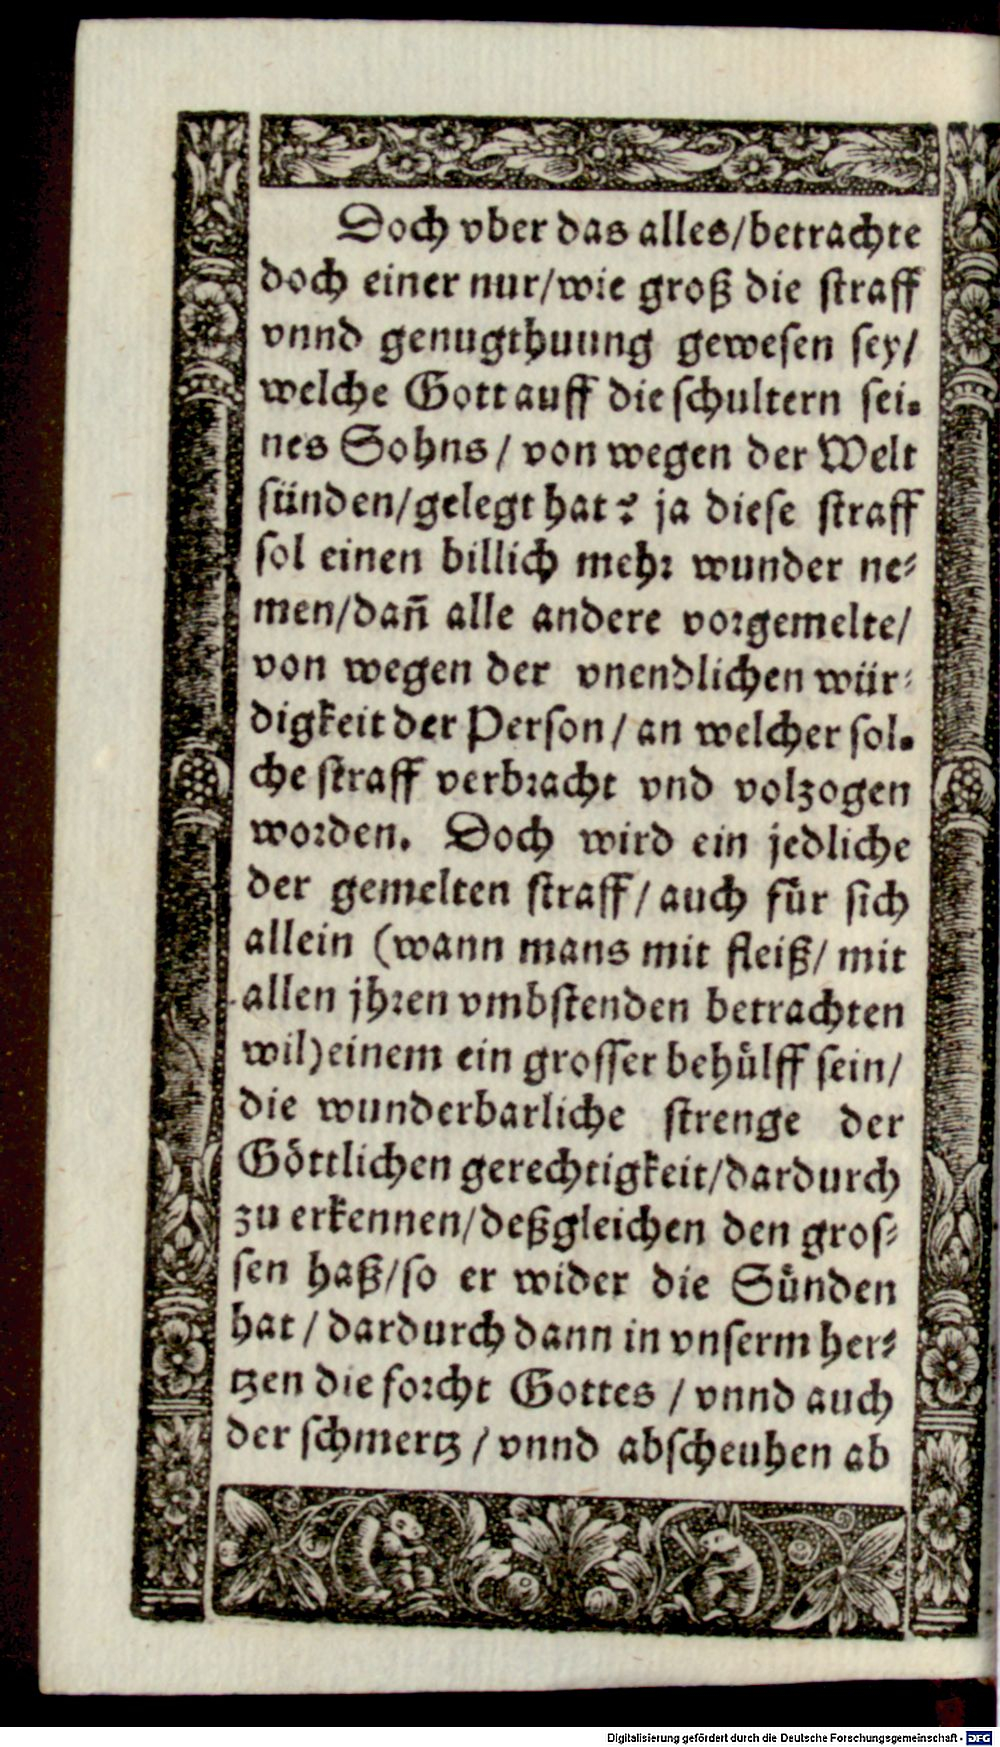 Doch vber das alles/betrachte
doch einer nur/wie groß die straff
vnnd genugthuung gewesen sey/
welche Gott auff die schultern sei-
nes Sohns / von wegen der Welt
sünden/gelegt hat? ja diese straff
sol einen billich mehr wunder ne-
men/dañ alle andere vorgemelte/
von wegen der vnendlichen wür-
digkeit der Person / an welcher sol-
che straff verbracht vnd volzogen
worden. Doch wird ein jedliche
der gemelten straff / auch für sich
allein (wann mans mit fleiß/ mit
allen jhren vmbstenden betrachten
wil) einem ein grosser behülff sein/
die wunderbarliche strenge der
Göttlichen gerechtigkeit/dardurch
zu erkennen/deßgleichen den gros-
sen haß/so er wider die Sünden
hat / dardurch dann in vnserm her-
tzen die forcht Gottes / vnnd auch
der schmertz / vnnd abscheuhen ab
Digitalisierung gefördert durch die Deutsche Forschungsgemeinschaft - DFG